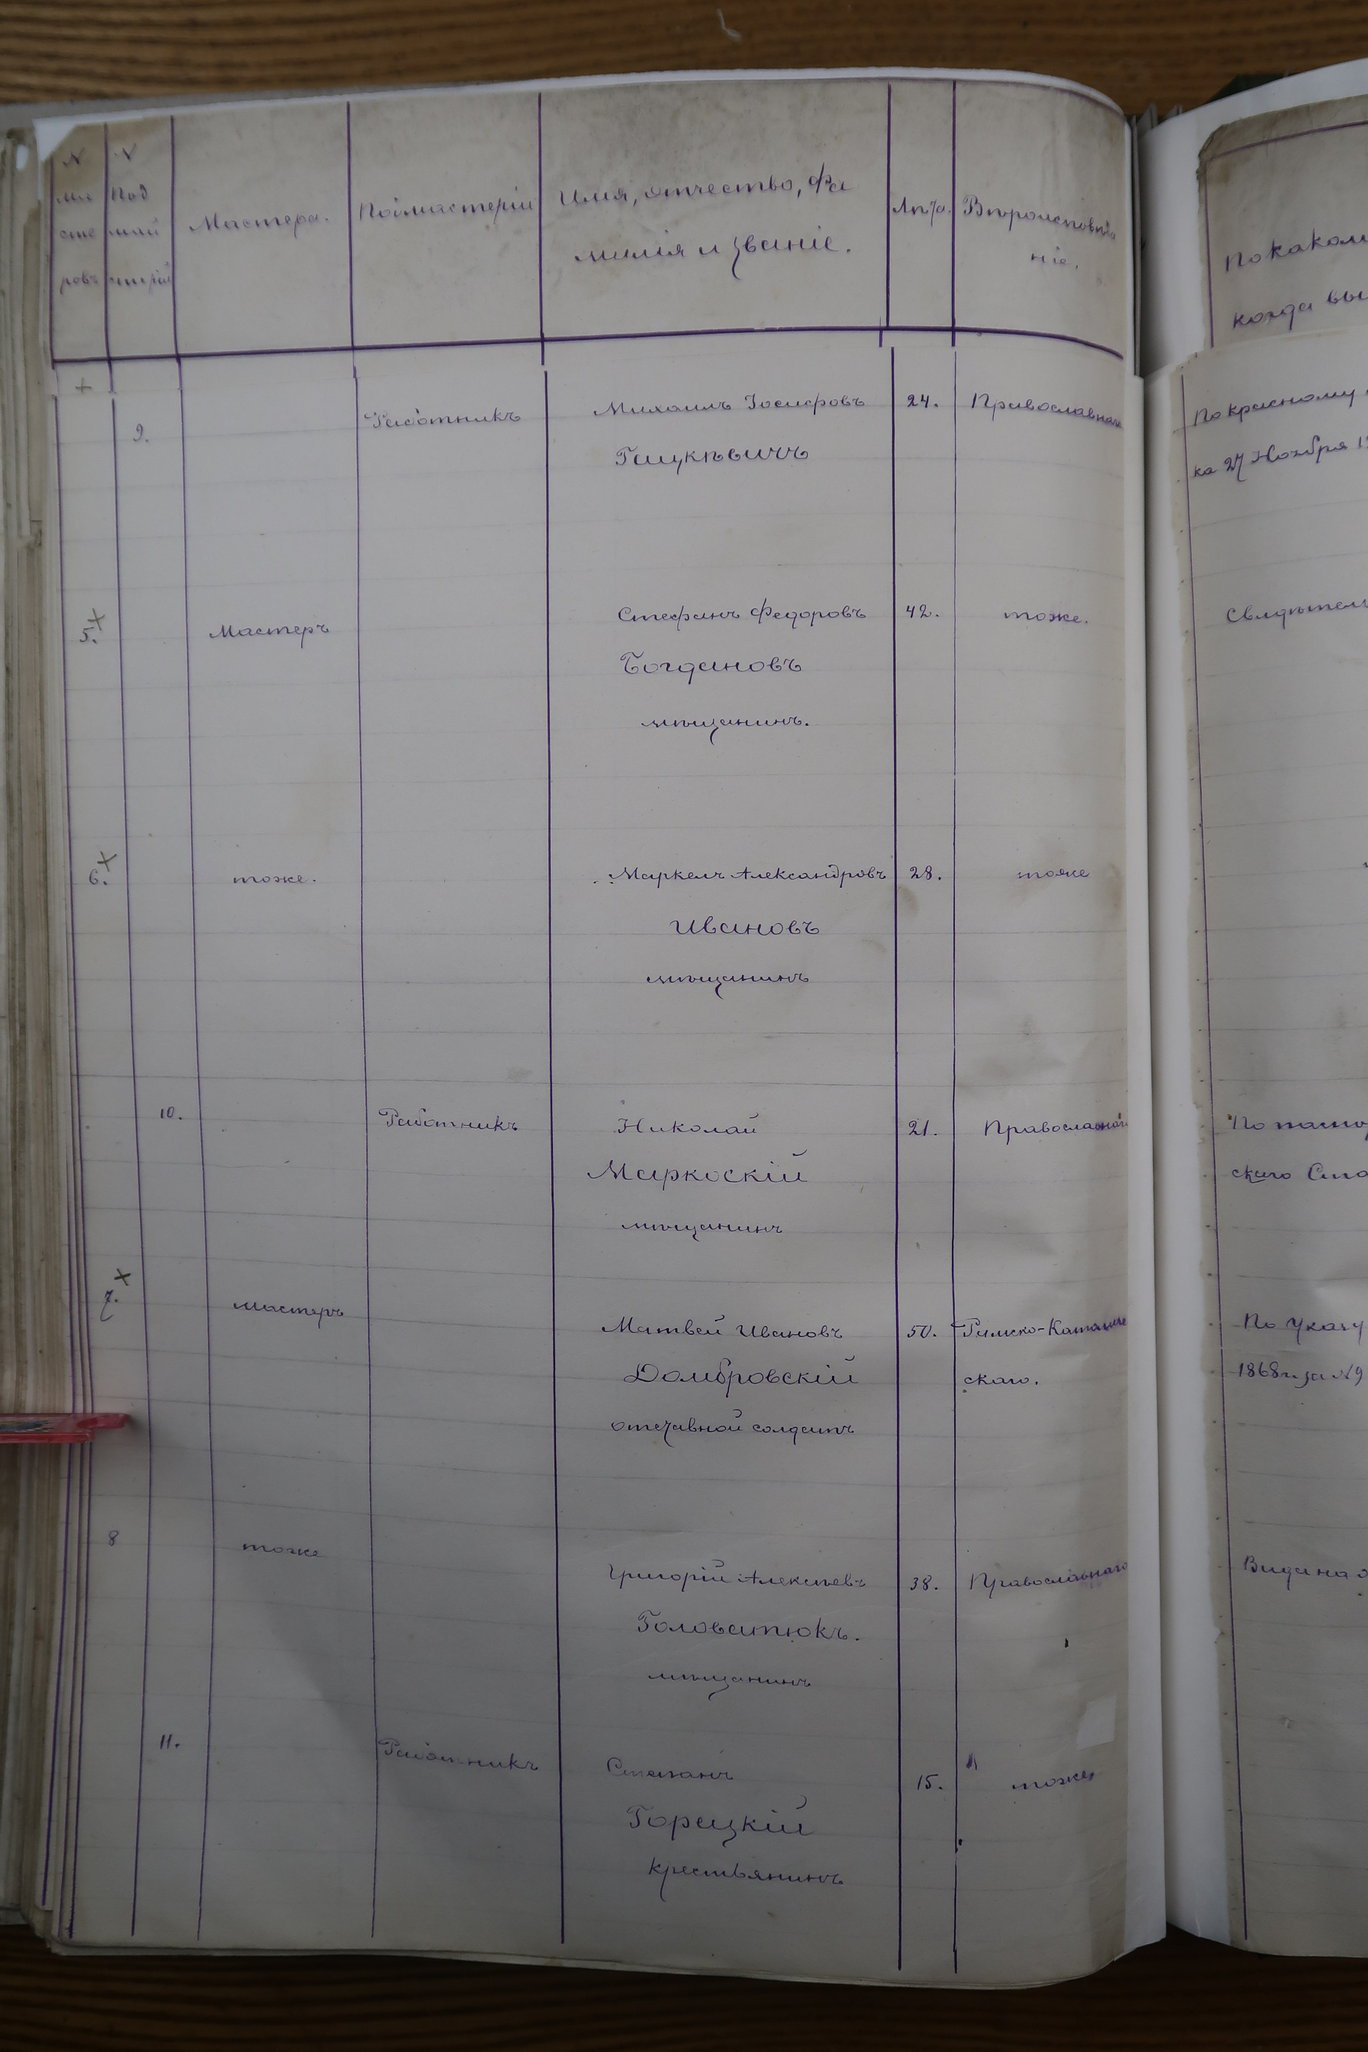 N
ма
сте
ровъ
N
Под
май
стрій
Мастера.
Подмастерій
Имя, отчество, Фа
милія и званіе.
Лѣта.
Вѣроисповѣда
ніе.
По каком
когда вы
9.
Работникъ
Михаилъ Іосифовъ
Гацкѣвичъ
24.
Православнаго
По красному
ка 27 Ноября 1
5.
Мастеръ
Стефанъ Федоровъ
Богдановъ
мѣщанинъ.
42.
тоже.
Свидѣтель
6.
тоже.
Маркелъ Александровъ
Ивановъ
мѣщанинъ
28.
тоже
10.
Работникъ
Николай
Маркоскій
мѣщанинъ
21.
Православнаго
По паспо
скаго Ста
7.
мастеръ
Матвей Ивановъ
Домбровскій
отставной солдатъ
50.
Римско-Католиче
скаго.
По Указу
1868 г. за №9
8
тоже
Григорій Алексѣевъ
Головатюкъ.
мѣщанинъ
38.
Православнаго
Вида на
11.
Работникъ
Степанъ
Горецкій
крестьянинъ
15.
тоже